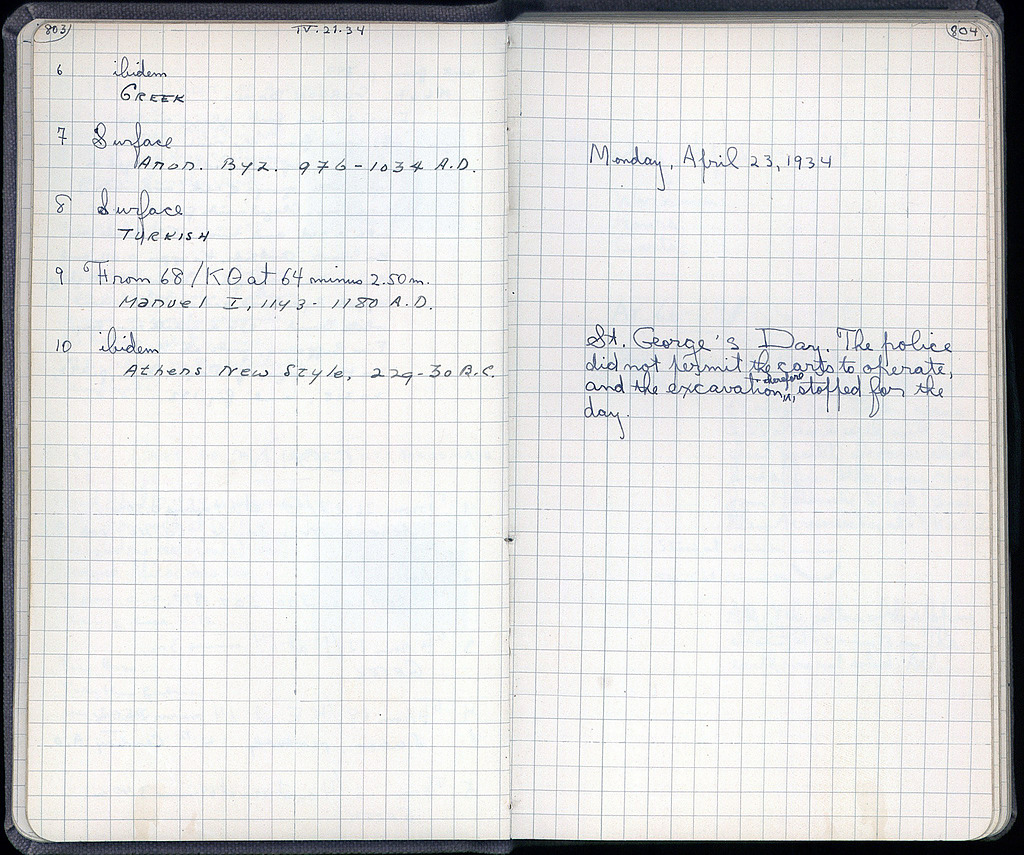 803
IV.21.34
6 ibidem
GREEK
7 Surface
Anon. Byz. 976-1034 A.D.
8 Surface
TURKISH
9 From 68/ΚΘ at 64 minus 2.50 m.
Manuel I, 1143-1180 A.D.
10 ibidem
Athens New Style, 229-30 B.C.
804
Monday, April 23, 1934
St. George's Day. The police
did not permit the carts to operate,
and the excavation, therefore, stopped for the
day.